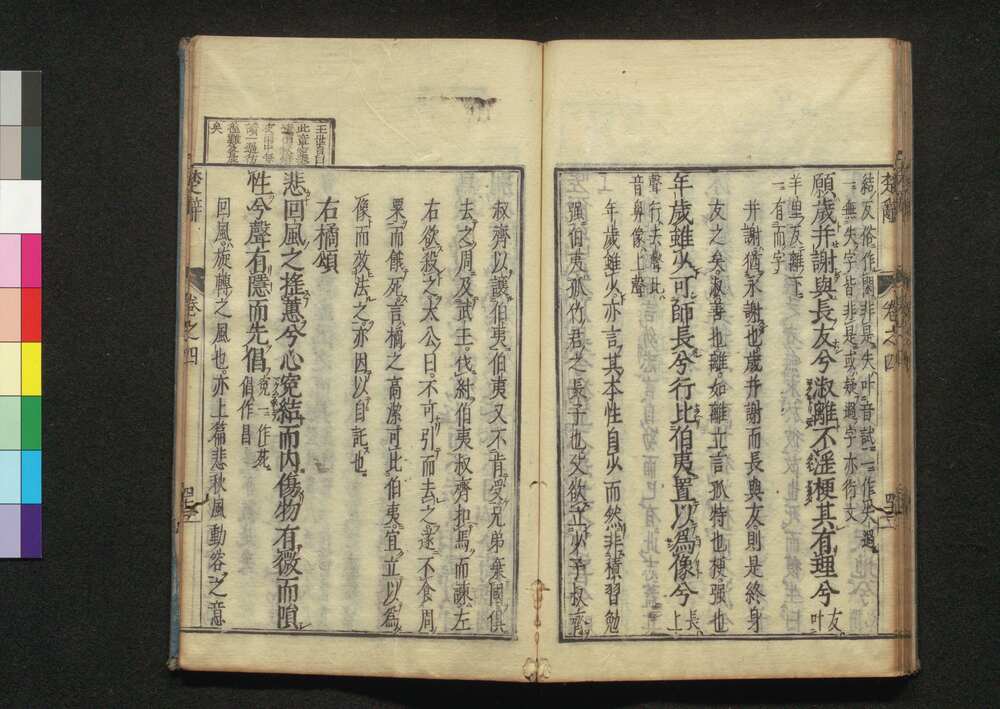 楚辭
卷之四
結反俗作閉非是失叶音試一作失過
一無失字皆非是或疑過字亦衍文
願歲并謝與長友兮淑離不淫梗其有理兮友叶
羊里反離一
有而字
并謝猶永謝也歲并謝而長與友則是終身
友之矣淑善也離如離立言孤特也梗强也
年歲雖少可師長兮行比伯夷置以爲像兮長上
聲行去聲比
音鼻像上聲
年歲雖少亦言其本性自少而然非積習勉
强伯夷孤竹君之長子也父欲立少子叔齊
叔齊以讓伯夷伯夷又不肯受兄弟棄國俱
去之周及武王伐紂伯夷叔齊扣馬而諫左
右欲殺之太公曰不可引而去之遂不食周
粟而餓死言橘之高潔可比伯夷宜立以爲
像而效法之亦因以自託也
右橘頌
悲回風之搖蕙兮心冤結而內傷物有微而隕
性兮聲有隱而先倡冤一作死
倡作昌
回風旋轉之風也亦上篇悲秋風動容之意
楚辭
卷之四